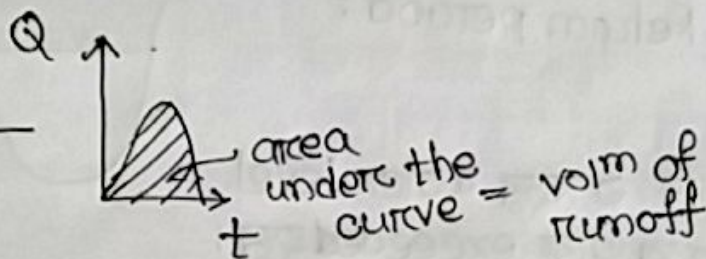 Q
area
under the
curve = volm of
runoff
t